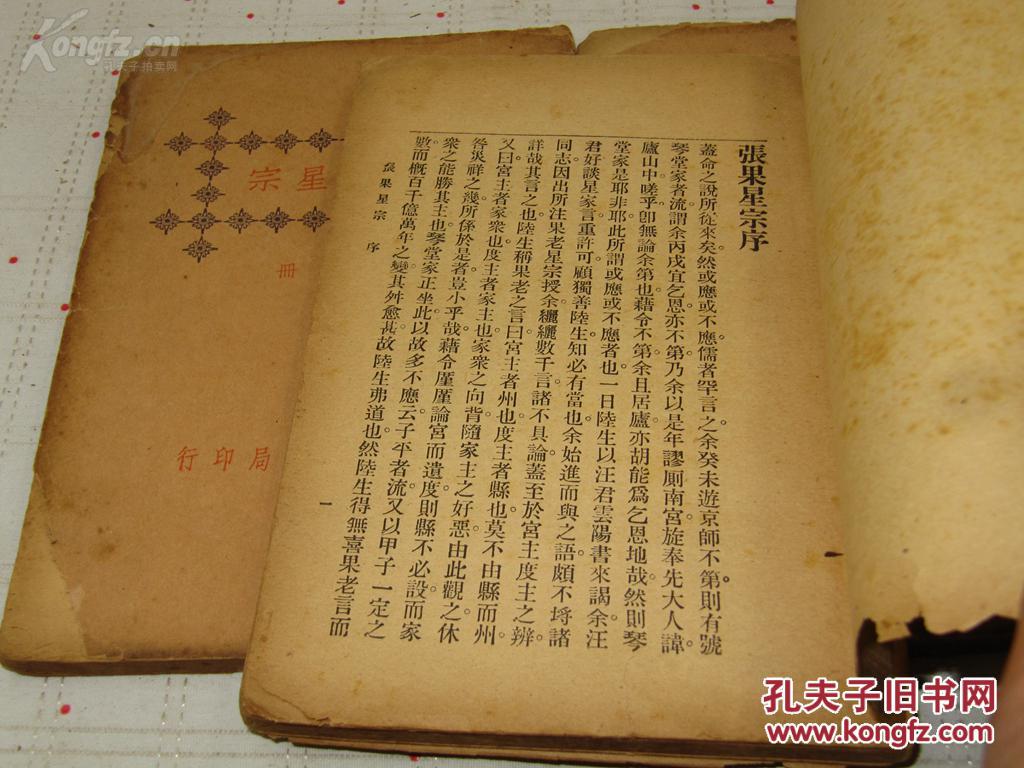 張果星宗序
蓋命之說所從來矣。然或應或不應。儒者罕言之。余癸未遊京師不第。則有號
琴堂家者流。謂余丙戌宜乞恩。亦不第。乃余以是年謬厠南宮。旋奉先大人諱。
廬山中。嗟乎。卽無論余第也。藉令不第。余且居廬。亦胡能爲乞恩地哉。然則琴
堂家是耶非耶。此所謂或應或不應者也。一日陸生以汪君雲陽書來謁余。汪
君好談星家言。重許可。顧獨善陸生。知必有當也。余始進而與之語。頗不埒諸
同志。因出所注果老星宗授余。纚纚數千言。諸不具論。蓋至於宮主度主之辨。
詳哉其言之也。陸生稱果老之言曰。宮主者州也。度主者縣也。莫不由縣而州。
又曰。宮主者家衆也。度主者家主也。家衆之向背。隨家主之好惡。由此觀之。休
咎災祥之幾。所係於是者。豈小乎哉。藉令廑廑論宮而遺度。則縣不必設。而家
衆之能勝其主也。琴堂家正坐此。以故多不應云。子平者流。又以甲子一定之
數。而概百千億萬年之變。其舛愈甚。故陸生弗道也。然陸生得無喜果老言而
張果星宗 序
一
星宗
冊
局印行
Kongfz.cn
孔夫子拍卖网
孔夫子旧书网
www.kongfz.com